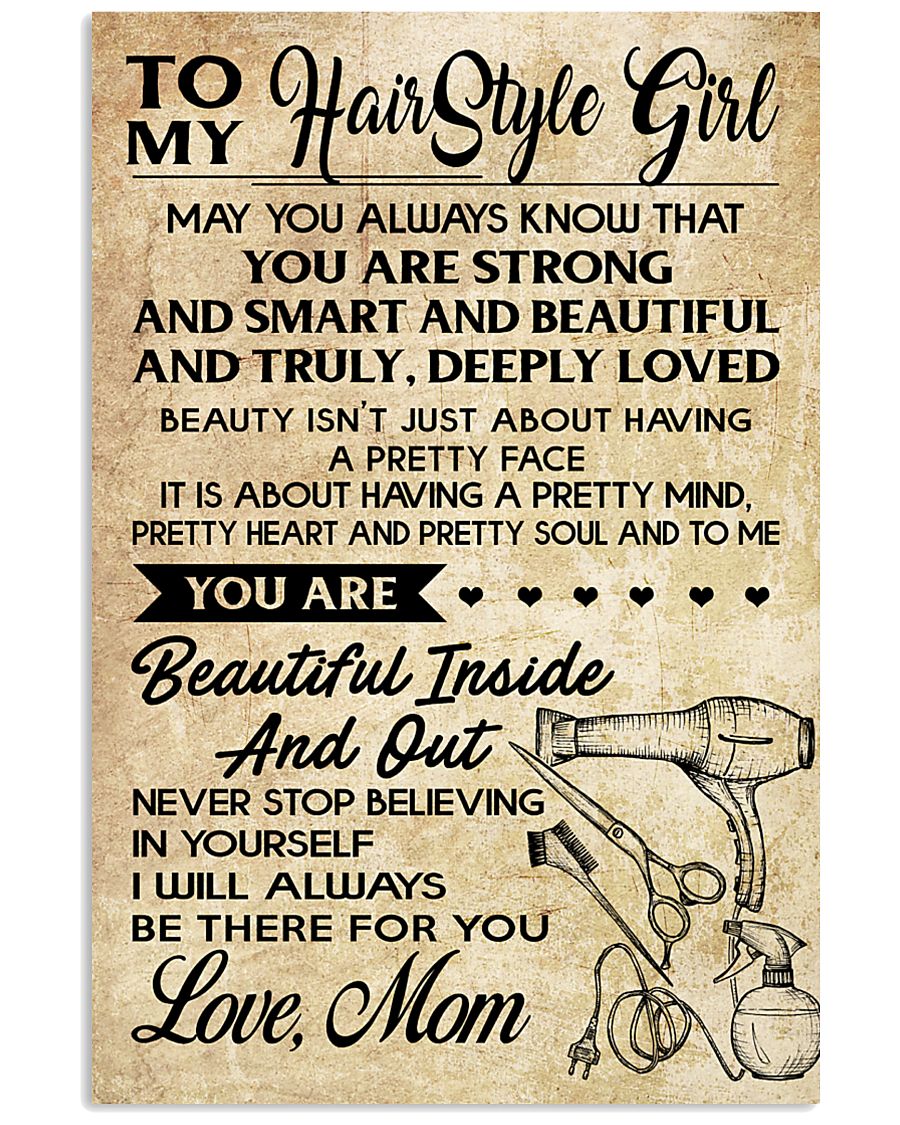 TO MY HairStyle Girl
MAY YOU ALWAYS KNOW THAT
YOU ARE STRONG
AND SMART AND BEAUTIFUL
AND TRULY, DEEPLY LOVED
BEAUTY ISN'T JUST ABOUT HAVING
A PRETTY FACE
IT IS ABOUT HAVING A PRETTY MIND,
PRETTY HEART AND PRETTY SOUL AND TO ME
YOU ARE
Beautiful Inside
And Out
NEVER STOP BELIEVING
IN YOURSELF
I WILL ALWAYS
BE THERE FOR YOU
Love, Mom